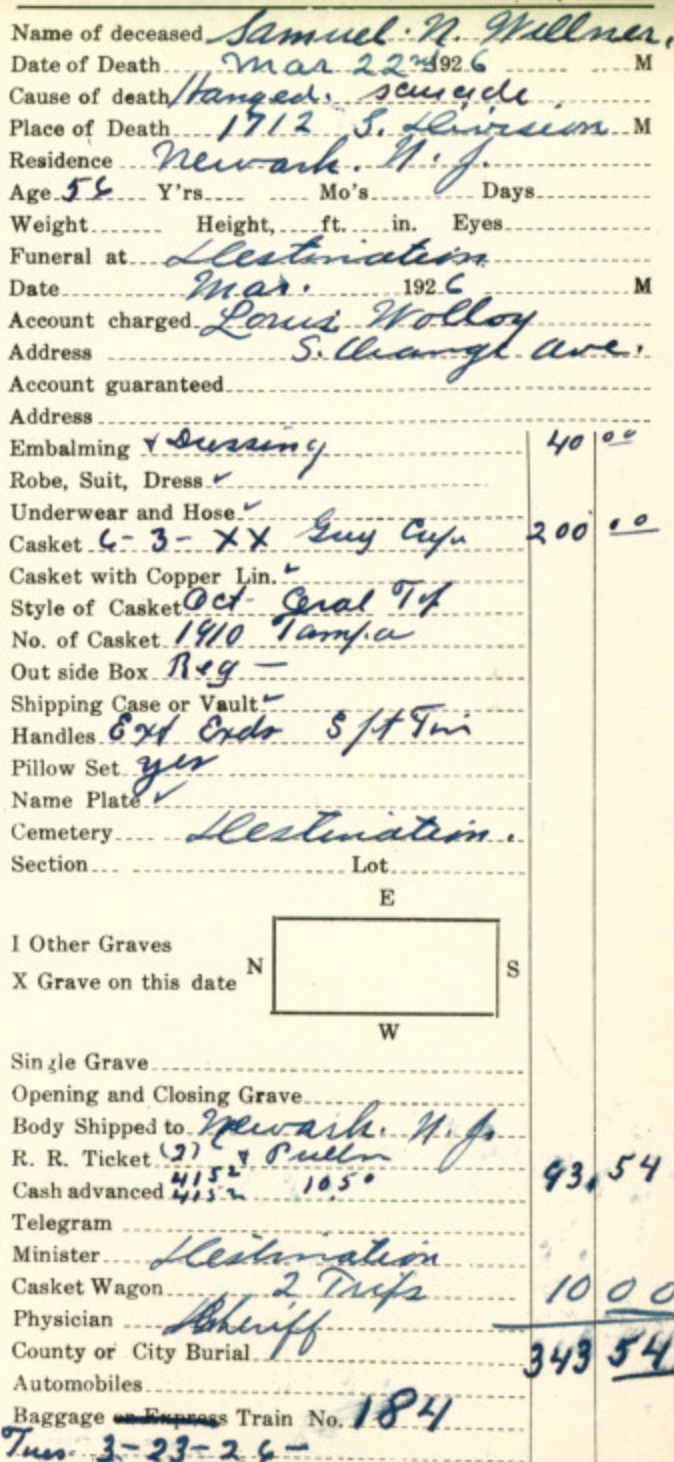 Name of deceased Samuel. N. Willner.
Date of Death Mar 22nd 1926 M
Cause of death Hanged. suicide
Place of Death 1712 S. Division M
Residence Newark. N. J.
Age 56 Y'rs Mo's Days
Weight Height, ft. in. Eyes
Funeral at Destination
Date Mar. 1926 M
Account charged Louis Wolloy
Address S. Orange Ave.
Account guaranteed
Address
Embalming & Dressing 40 00
Robe, Suit, Dress ✓
Underwear and Hose ✓
Casket 6-3-XX 200 00
Casket with Copper Lin. ✓
Style of Casket Oct- Top
No. of Casket 1910 Tampa
Out side Box Reg -
Shipping Case or Vault ✓
Handles Ext Ends
Pillow Set yes
Name Plate ✓
Cemetery Destination.
Section Lot
E
I Other Graves
N S
X Grave on this date
W
Single Grave
Opening and Closing Grave
Body Shipped to Newark. N. J.
R. R. Ticket (2) & Pullm 93.54
Cash advanced 4152 4152 1050
Telegram
Minister Destination
Casket Wagon 2 Trips 10 00
Physician Sheriff
County or City Burial 343 54
Automobiles
Baggage or Express Train No. 184
Tues. 3-23-26-